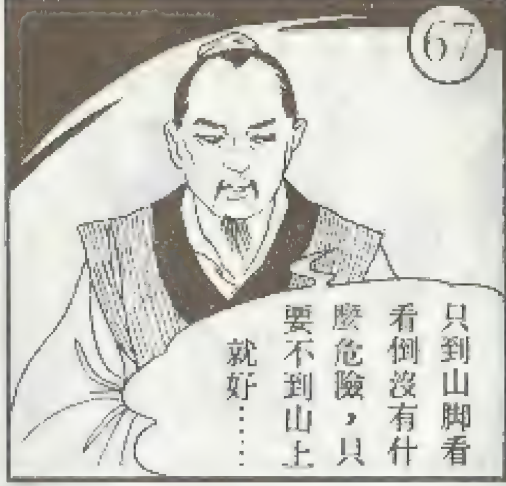 67
只到山脚看
看倒沒有什
麼危險，只
要不到山上
就好……